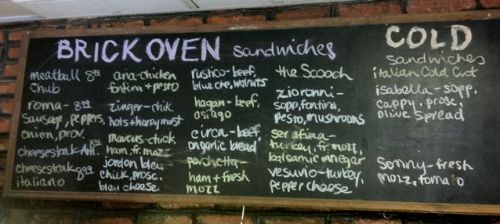 BRICK OVEN sandwiches
COLD
sandwiches
meatball 8.99
chub
roma - 8.99
sausage, peppers
onion, prov.
cheesesteak-Am.
cheesesteak 8.99
italiano
ana-chicken
fontina + pesto
zinger-chik
hots + honymust
marcus-chik
ham, fr. mozz
jordon bleu
chick, prosc,
bleu cheese
rustico-beef,
blue che, walnuts
hagan-beef,
asiago
circa-beef,
onganic bread
porchetta-
ham + fresh
mozz
the Scooch
zioronni-
sopp, fontina,
pesto, mushrooms
serafina-
turkey, fr. mozz,
balsamic vinegar
vesuvio-turkey,
pepper cheese
italian Cold Cut
isabella-sopp,
cappy, prosc,
olive spread
sonny-fresh
mozz, tomato